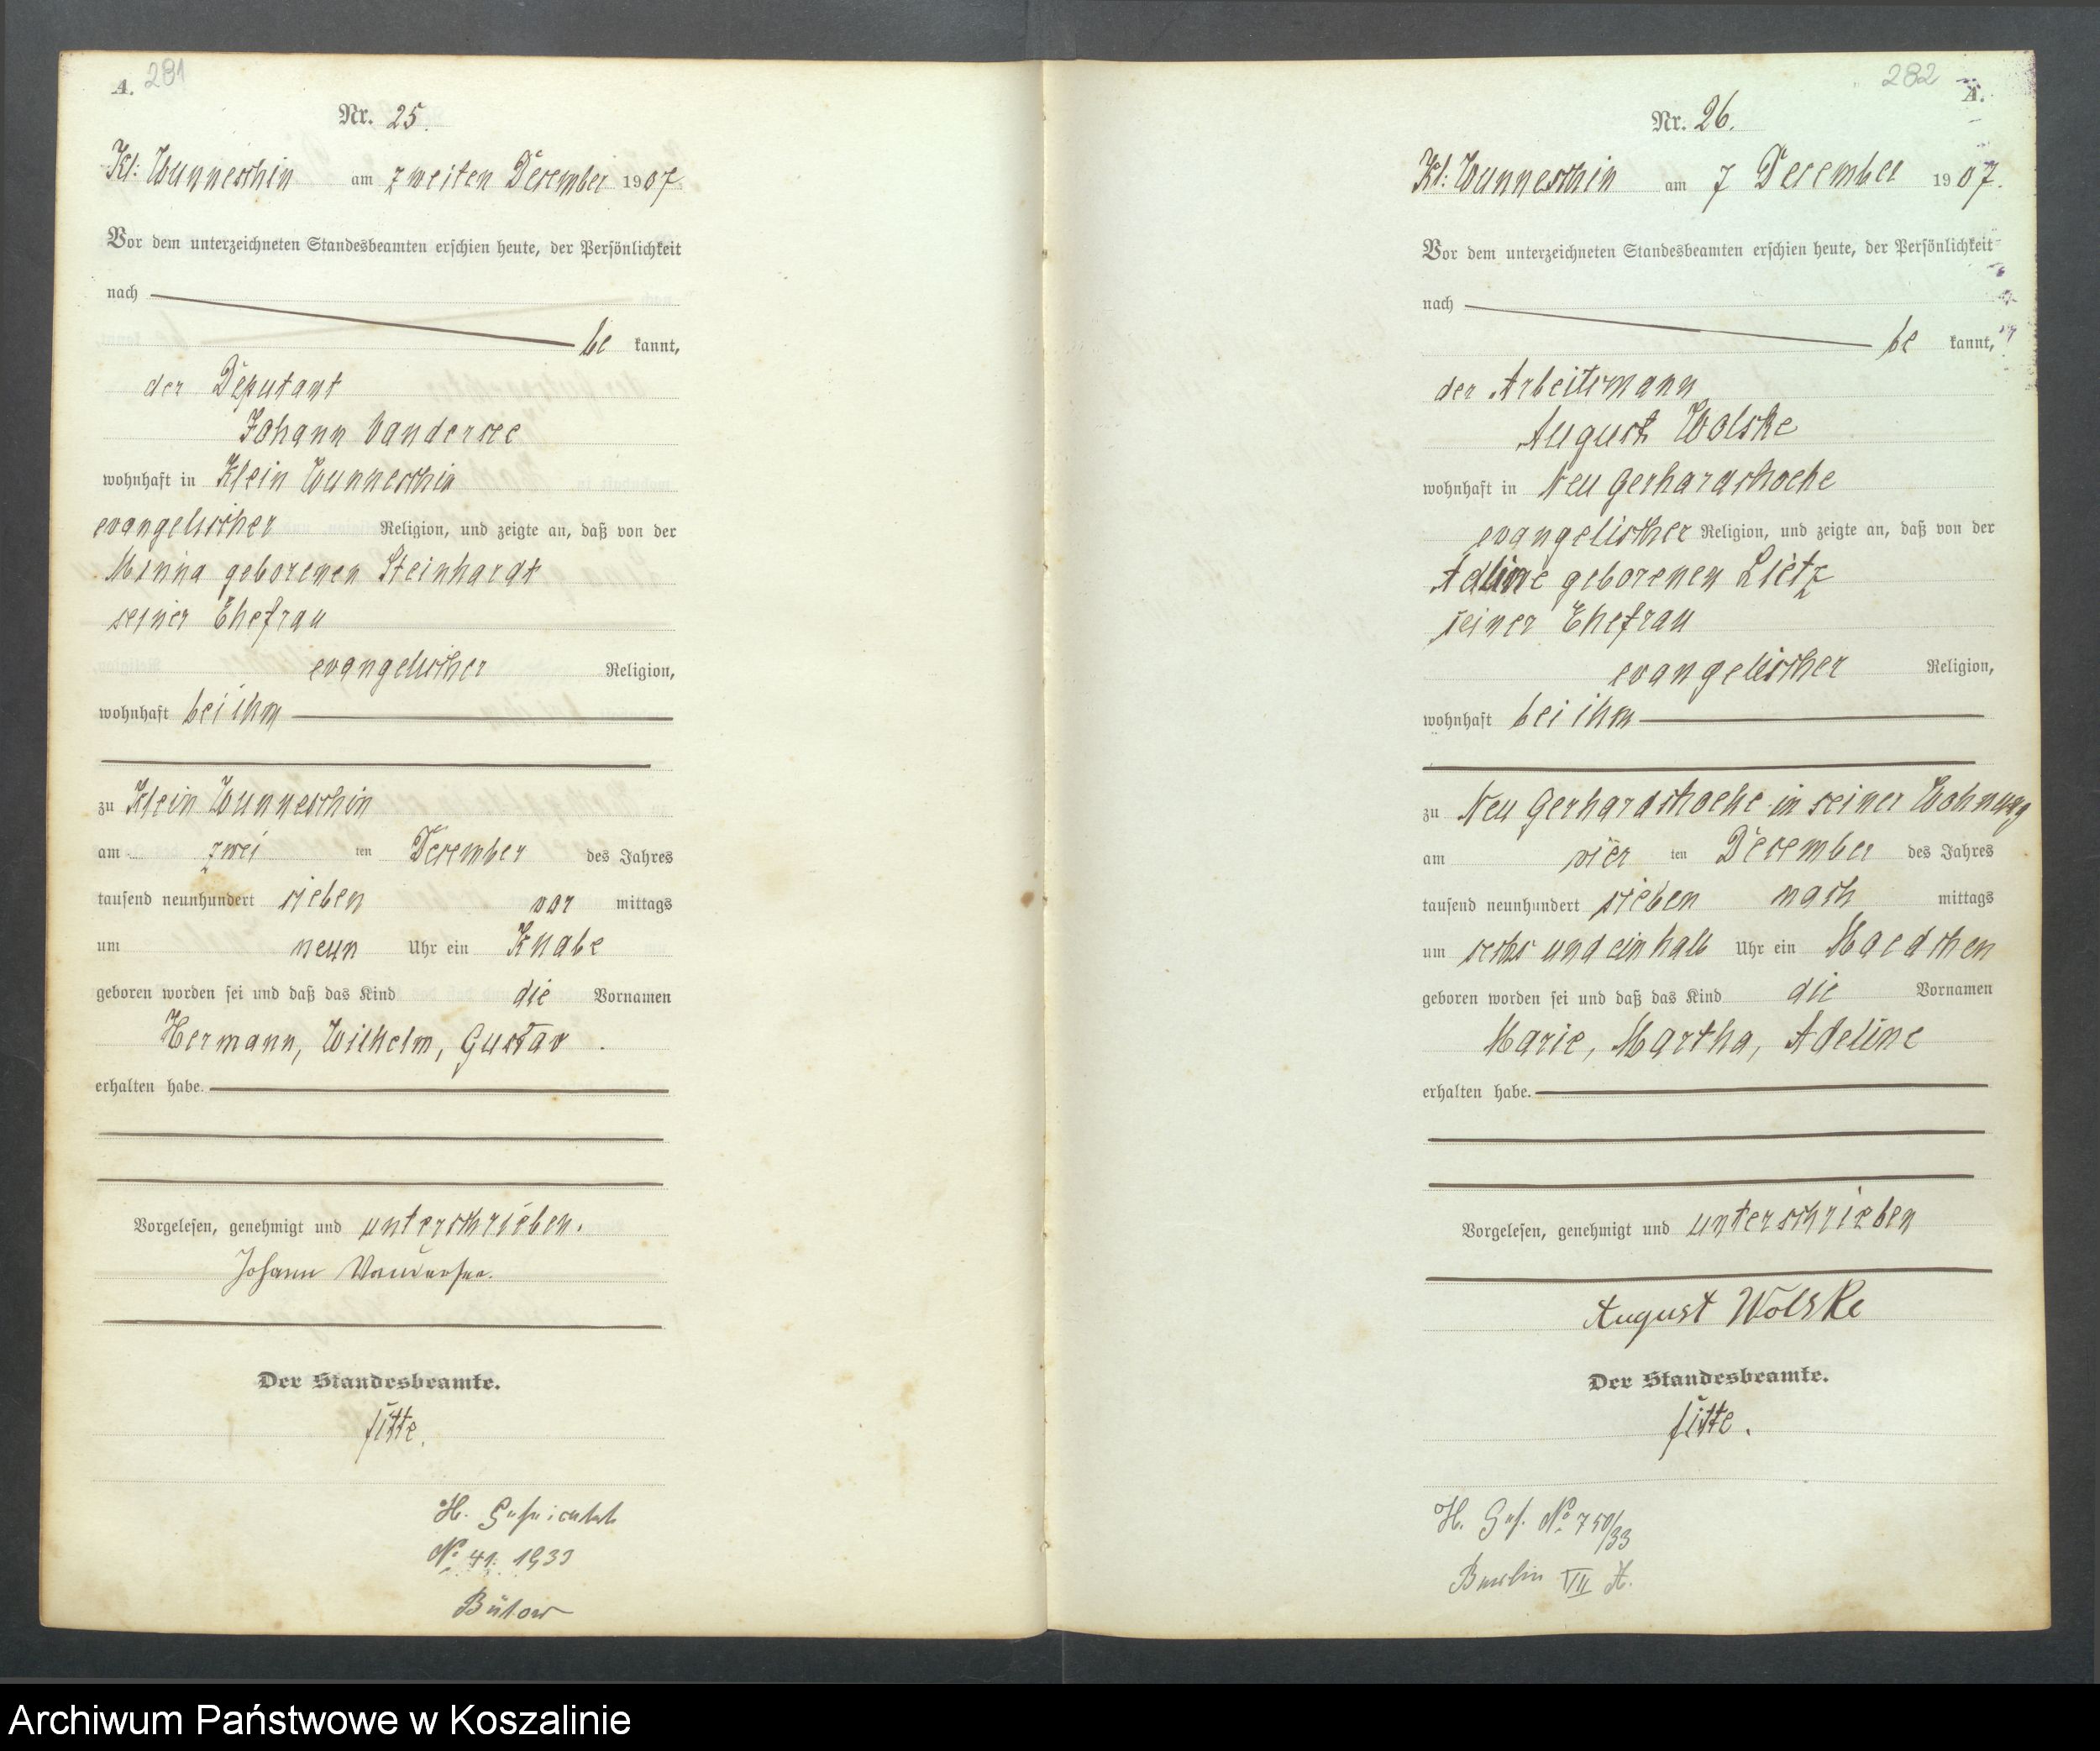 A. 281
Nr. 25.
Kl: Wunneschin am zweiten Dezember 1907.
Vor dem unterzeichneten Standesbeamten erschien heute, der Persönlichkeit
nach
be kannt,
der Deputant
Johann Vandersee
wohnhaft in Klein Wunneschin
evangelischer Religion, und zeigte an, daß von der
Minna geborenen Steinhardt
seiner Ehefrau
evangelischer Religion,
wohnhaft bei ihm
zu Klein Wunneschin
am zwei ten Dezember des Jahres
tausend neunhundert sieben vor mittags
um neun Uhr ein Knabe
geboren worden sei und daß das Kind die Vornamen
Hermann, Wilhelm, Gustav.
erhalten habe.
Vorgelesen, genehmigt und unterschrieben.
Johann Vandersee.
Der Standesbeamte.
H.
No 41. 1933
Bütow
282 A.
Nr. 26.
Kl: Wunneschin am 7 Dezember 1907.
Vor dem unterzeichneten Standesbeamten erschien heute, der Persönlichkeit
nach
be kannt,
der Arbeitsmann
August Wolske
wohnhaft in Neu Gerhardshoehe
evangelischer Religion, und zeigte an, daß von der
Adline geborenen Lietz
seiner Ehefrau
evangelischer Religion,
wohnhaft bei ihm
zu Neu Gerhardshoehe in seiner Wohnung
am vier ten Dezember des Jahres
tausend neunhundert sieben nach mittags
um sechs und ein halb Uhr ein Maedchen
geboren worden sei und daß das Kind die Vornamen
Marie, Martha, Adeline
erhalten habe.
Vorgelesen, genehmigt und unterschrieben
August Wolske
Der Standesbeamte.
H. No 750/33
Berlin VII
Archiwum Państwowe w Koszalinie